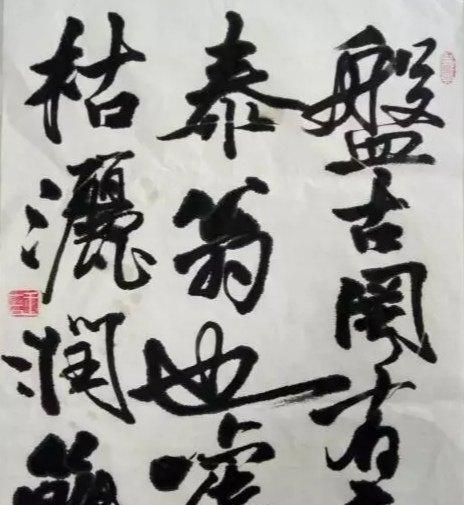 盤古開有
泰翁也
枯灑潤